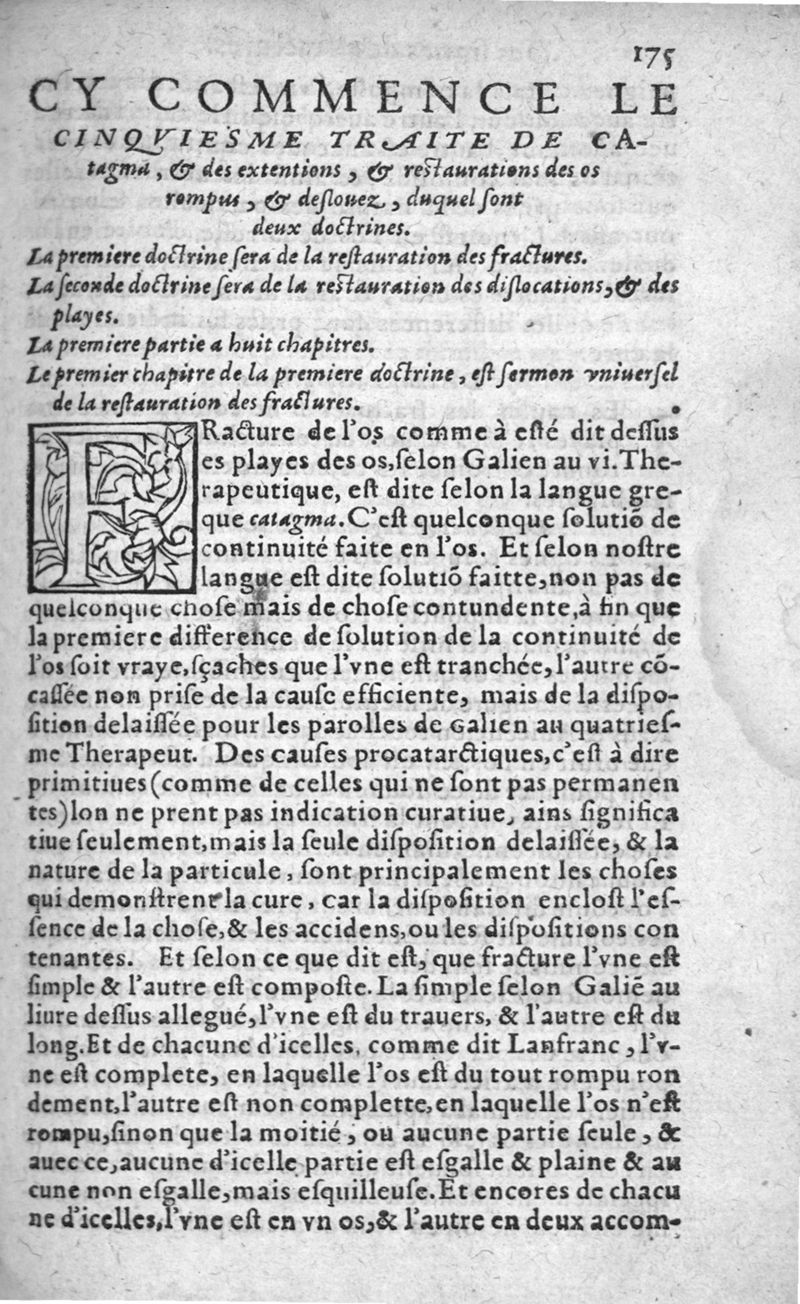 175
CY COMMENCE LE
CINQVIESME TRAITE DE CA-
tagma, & des extentions, & restaurations des os
rompus, & deslouez, duquel sont
deux doctrines.
La premiere doctrine sera de la restauration des fractures.
La seconde doctrine sera de la restauration des dislocations, & des
playes.
La premiere partie a huit chapitres.
Le premier chapitre de la premiere doctrine, est sermon vniuersel
de la restauration des fractures.
FRacture de l'os comme à esté dit dessus
es playes des os, selon Galien au vi. The-
rapeutique, est dite selon la langue gre-
que catagma. C'est quelconque solutiõ de
continuité faite en l'os. Et selon nostre
langue est dite solutiõ faitte, non pas de
quelconque chose mais de chose contundente, à fin que
la premiere difference de solution de la continuité de
l'os soit vraye, sçaches que l'vne est tranchée, l'autre cõ-
cassée non prise de la cause efficiente, mais de la dispo-
sition delaissée pour les parolles de Galien au quatries-
me Therapeut. Des causes procatarctiques, c'est à dire
primitiues (comme de celles qui ne sont pas permanen
tes) lon ne prent pas indication curatiue, ains significa
tiue seulement, mais la seule disposition delaissée, & la
nature de la particule, sont principalement les choses
qui demonstrent la cure, car la disposition enclost l'es-
sence de la chose, & les accidens, ou les dispositions con
tenantes. Et selon ce que dit est, que fracture l'vne est
simple & l'autre est composte. La simple selon Galiẽ au
liure dessus allegué, l'vne est du trauers, & l'autre est du
long. Et de chacune d'icelles, comme dit Lanfranc, l'v-
ne est complete, en laquelle l'os est du tout rompu ron
dement, l'autre est non complette, en laquelle l'os n'est
rompu, sinon que la moitié, ou aucune partie seule, &
auec ce, aucune d'icelle partie est esgalle & plaine & au
cune non esgalle, mais esquilleuse. Et encores de chacu
ne d'icelles, l'vne est en vn os, & l'autre en deux accom-